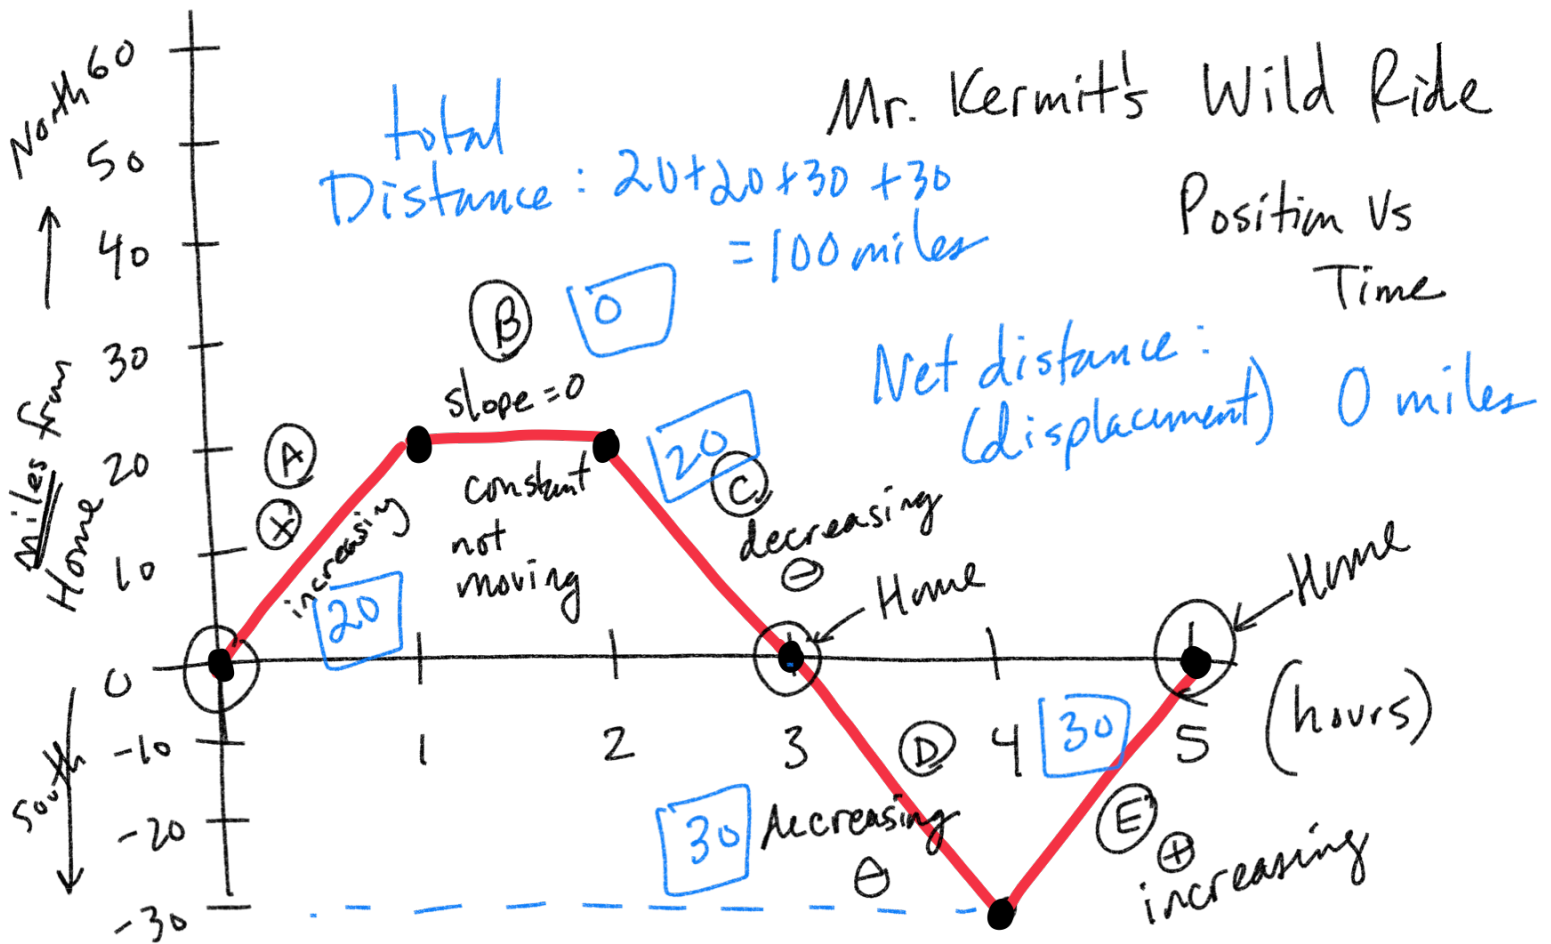 Mr. Kermit's Wild Ride
Position Vs
Time
total
Distance : 20+20+30+30
= 100 miles
Net distance :
(displacement) 0 miles
North
Miles from
Home
South
60
50
40
30
20
10
0
-10
-20
-30
1
2
3
4
5
(hours)
A
+
increasing
20
B
0
slope = 0
constant
not
moving
20
C
decreasing
-
Home
D
30
decreasing
-
30
E
+
increasing
Home